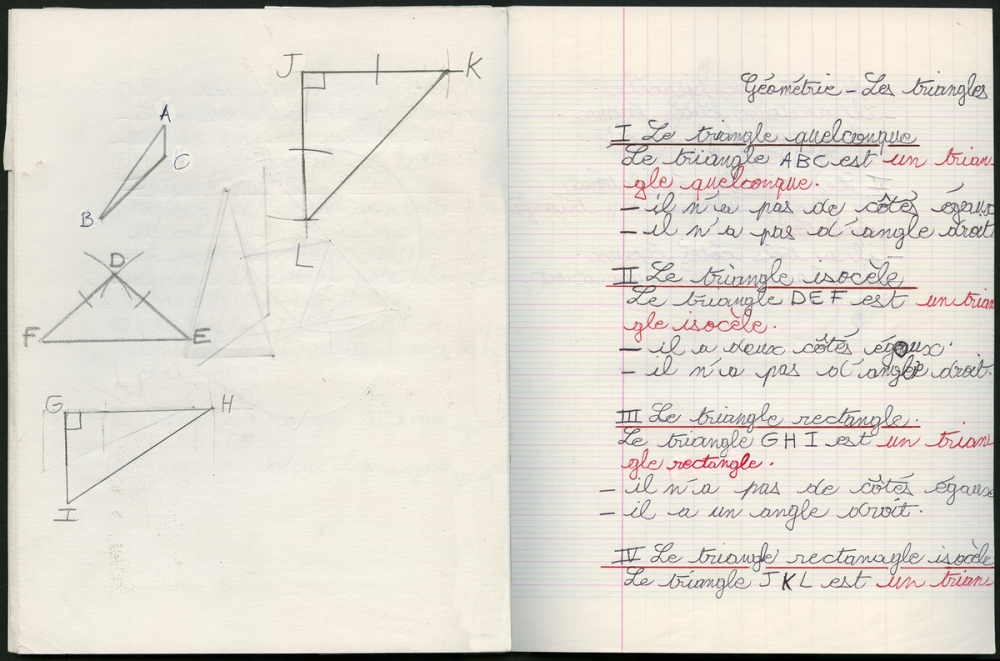 J
K
A
C
B
L
D
F
E
G
H
I
Géométrie - Les triangles
I Le triangle quelconque
Le triangle ABC est un trian-
gle quelconque.
- il n'a pas de côtés égaux
- il n'a pas d'angle droit
II Le triangle isocèle
Le triangle DEF est un trian
gle isocèle.
- il a deux côtés égaux.
- il n'a pas d'angle droit.
III Le triangle rectangle.
Le triangle GHI est un trian
gle rectangle.
- il n'a pas de côtés égaux
- il a un angle droit.
IV Le triangle rectanagle isocèle
Le triangle JKL est un trian